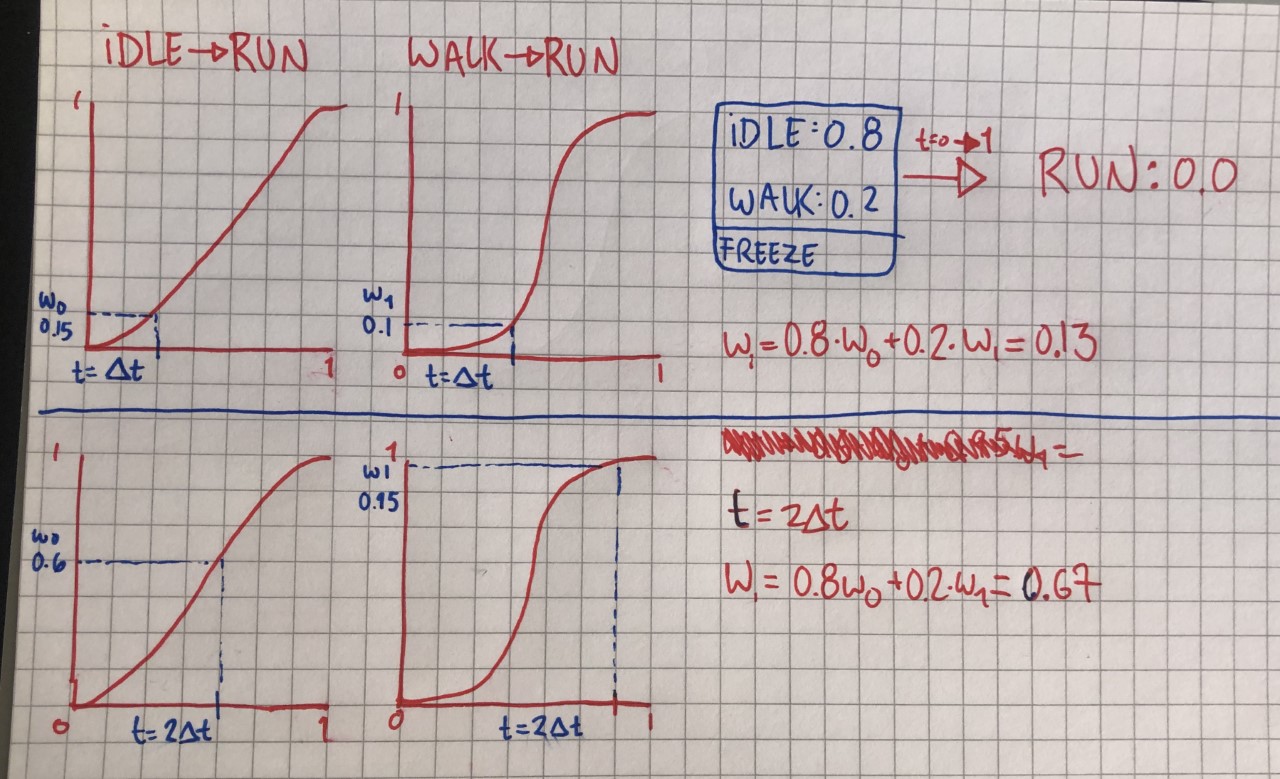 IDLE→RUN
1
w₀
0.15
t=Δt
1
WALK→RUN
1
w₁
0.1
0
t=Δt
1
IDLE: 0.8
WALK: 0.2
FREEZE
t=0→1
RUN: 0.0
wᵢ=0.8·w₀+0.2·w₁=0.13
1
w₀
0.6
0
t=2Δt
1
1
w1
0.95
0
t=2Δt
1
t=2Δt
Wᵢ=0.8w₀+0.2·w₁=0.67